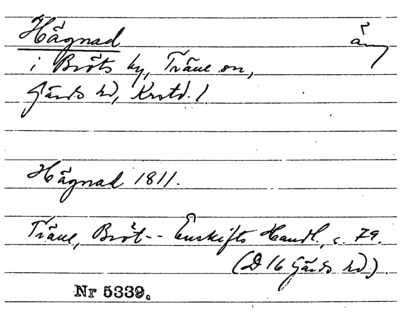 Hägnad äng
i Bröts by, Träne sn,
Gärds hd, Krstd. l
Hägnad 1811.
Träne, Bröt -- Enskifts Handl. c. 79.
(D 16 Gärds hd.)
Nr 5339.